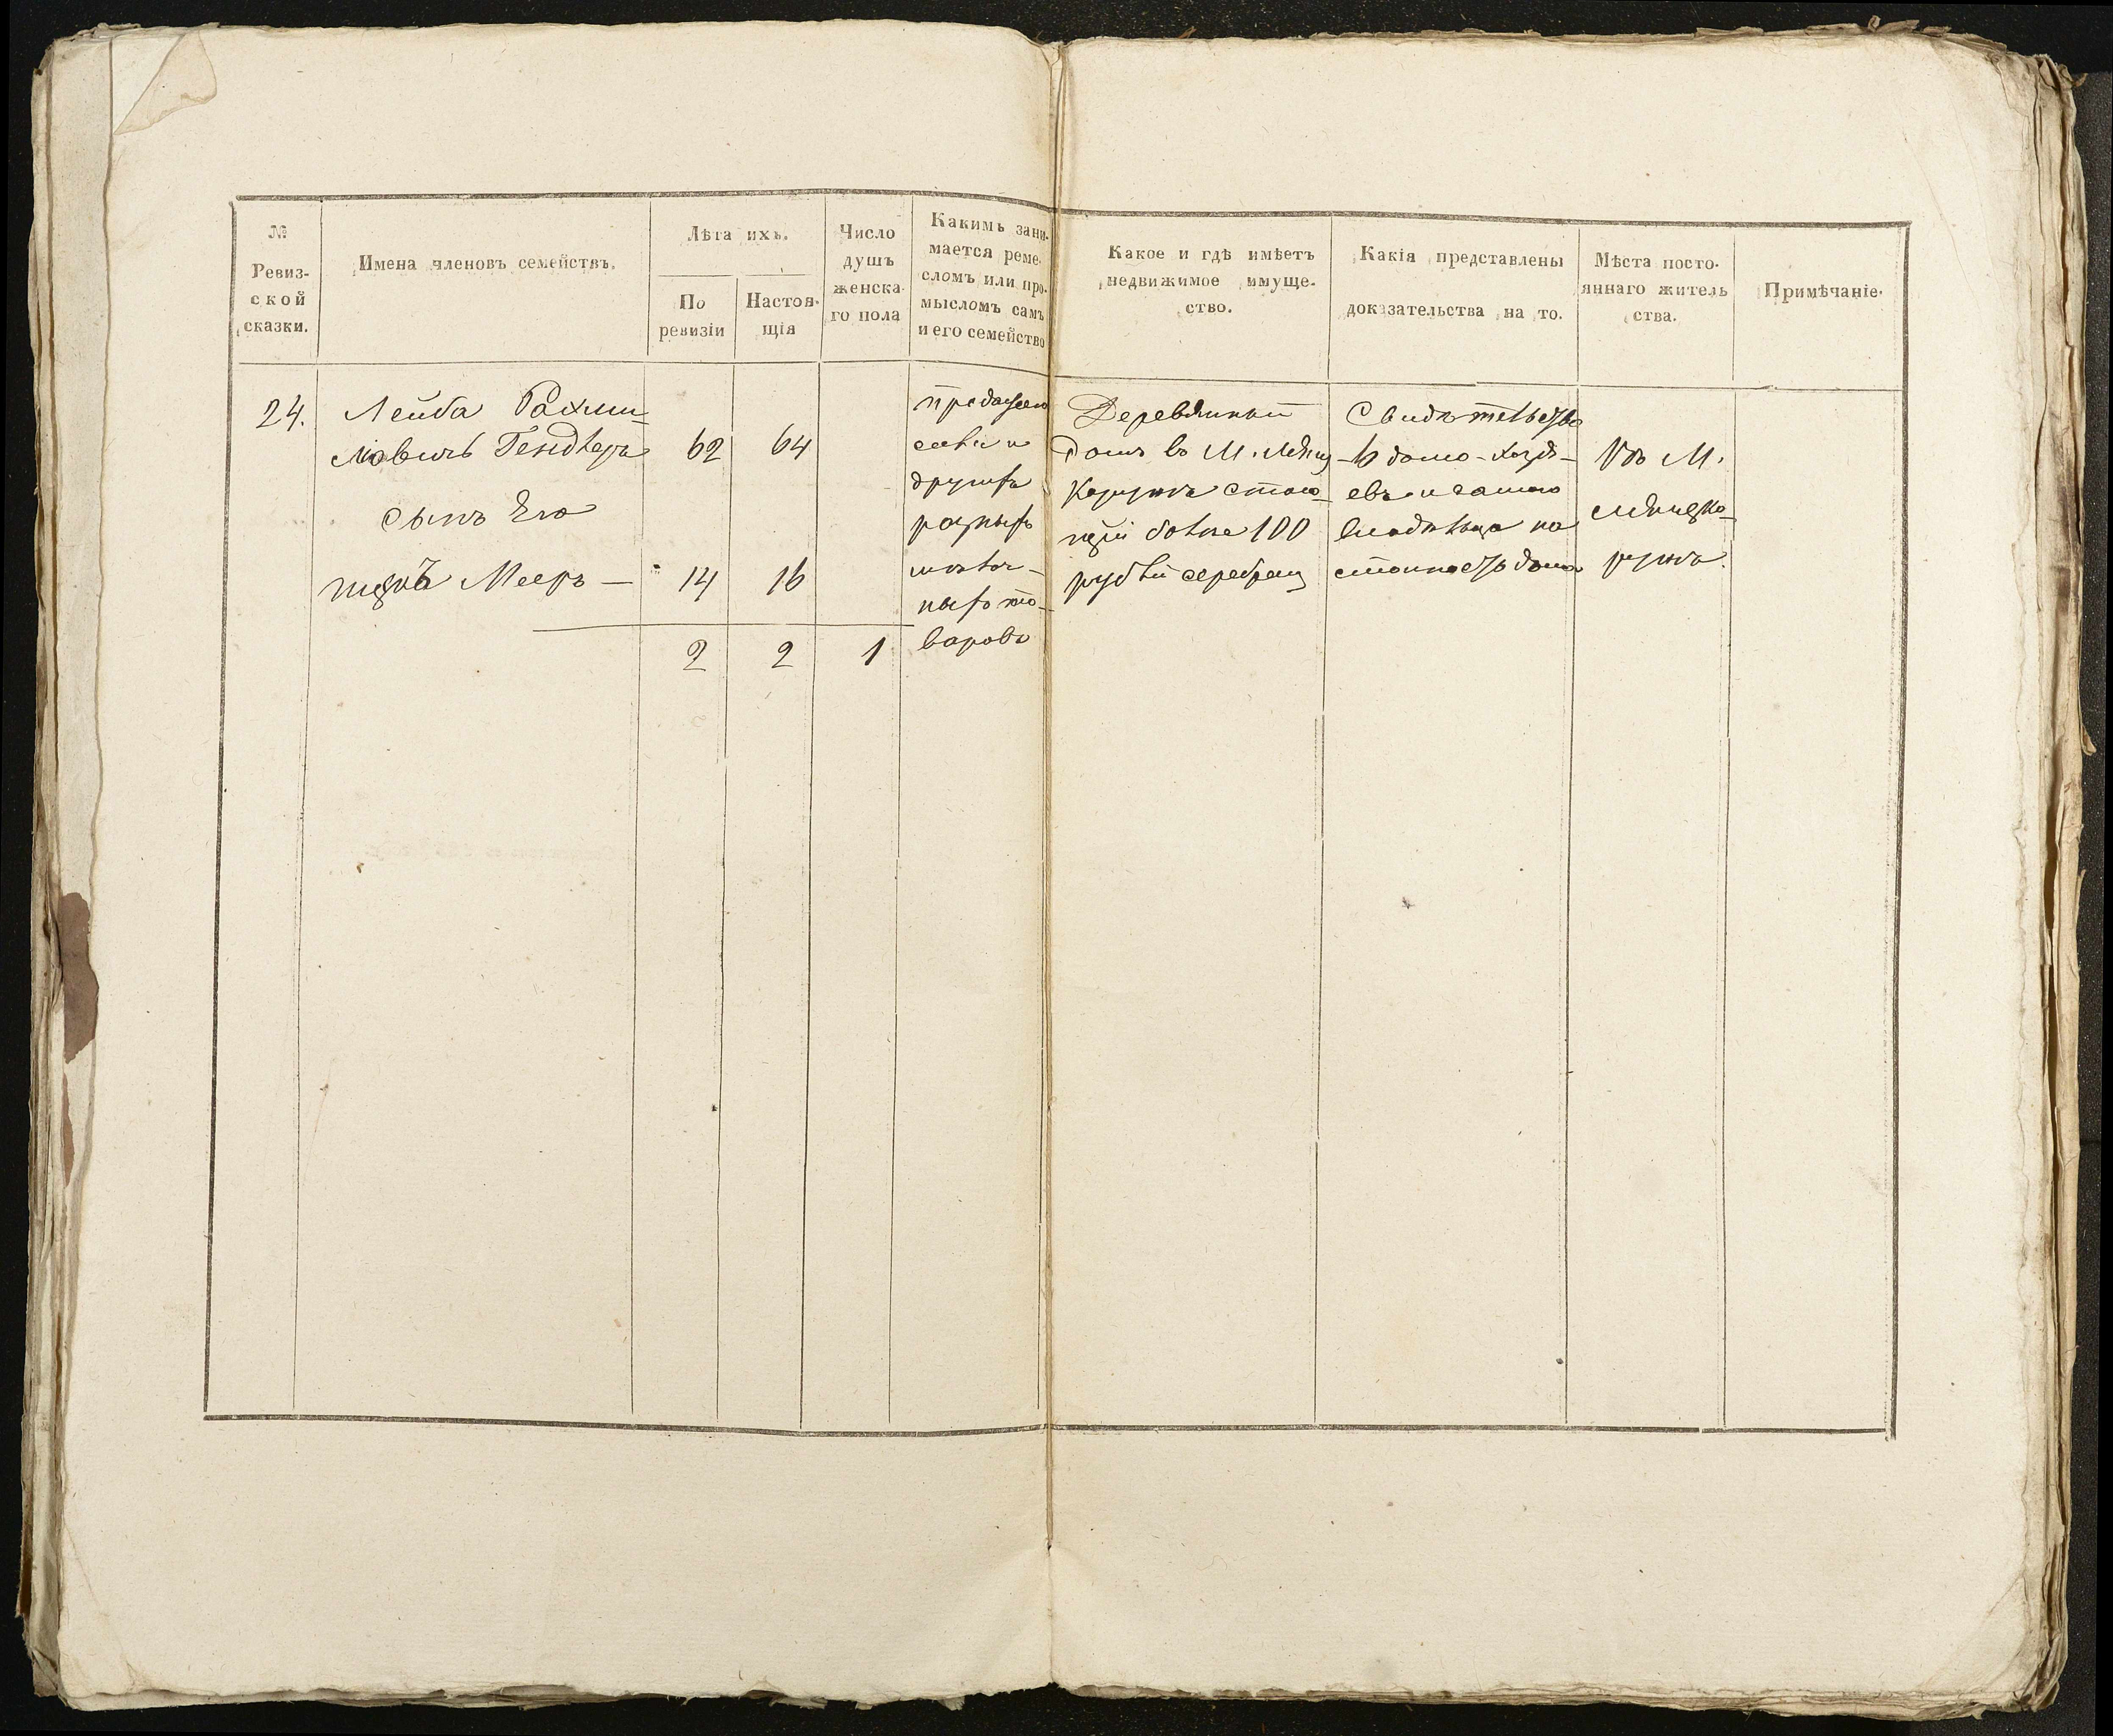 №
Ревиз-
ской
сказки.
Имена членовъ семействъ.
Лѣта ихъ.
По
ревизіи
Настоя-
щія
Число
душъ
женска-
го пола
Какимъ зани-
мается реме-
сломъ или про-
мысломъ самъ
и его семейство
Какое и гдѣ имѣетъ
недвижимое имуще-
ство.
Какія представлены
доказательства на то.
Мѣста посто-
яннаго житель
ства.
Примѣчаніе.
24.
Лейба Рахми-
ліовичъ Гендлеръ 62 64
сынъ Его
Мееръ — 14 16
2 2 1
продажею
соли и
другихъ
разныхъ
мѣлоч-
ныхъ то-
варовъ
Деревянный
домъ въ М.
стою-
щій болѣе 100
рублей серебромъ
Свидѣтельство
6 домо-хозя-
евъ и самаго
владѣльца на
стоимость дома
Въ М.